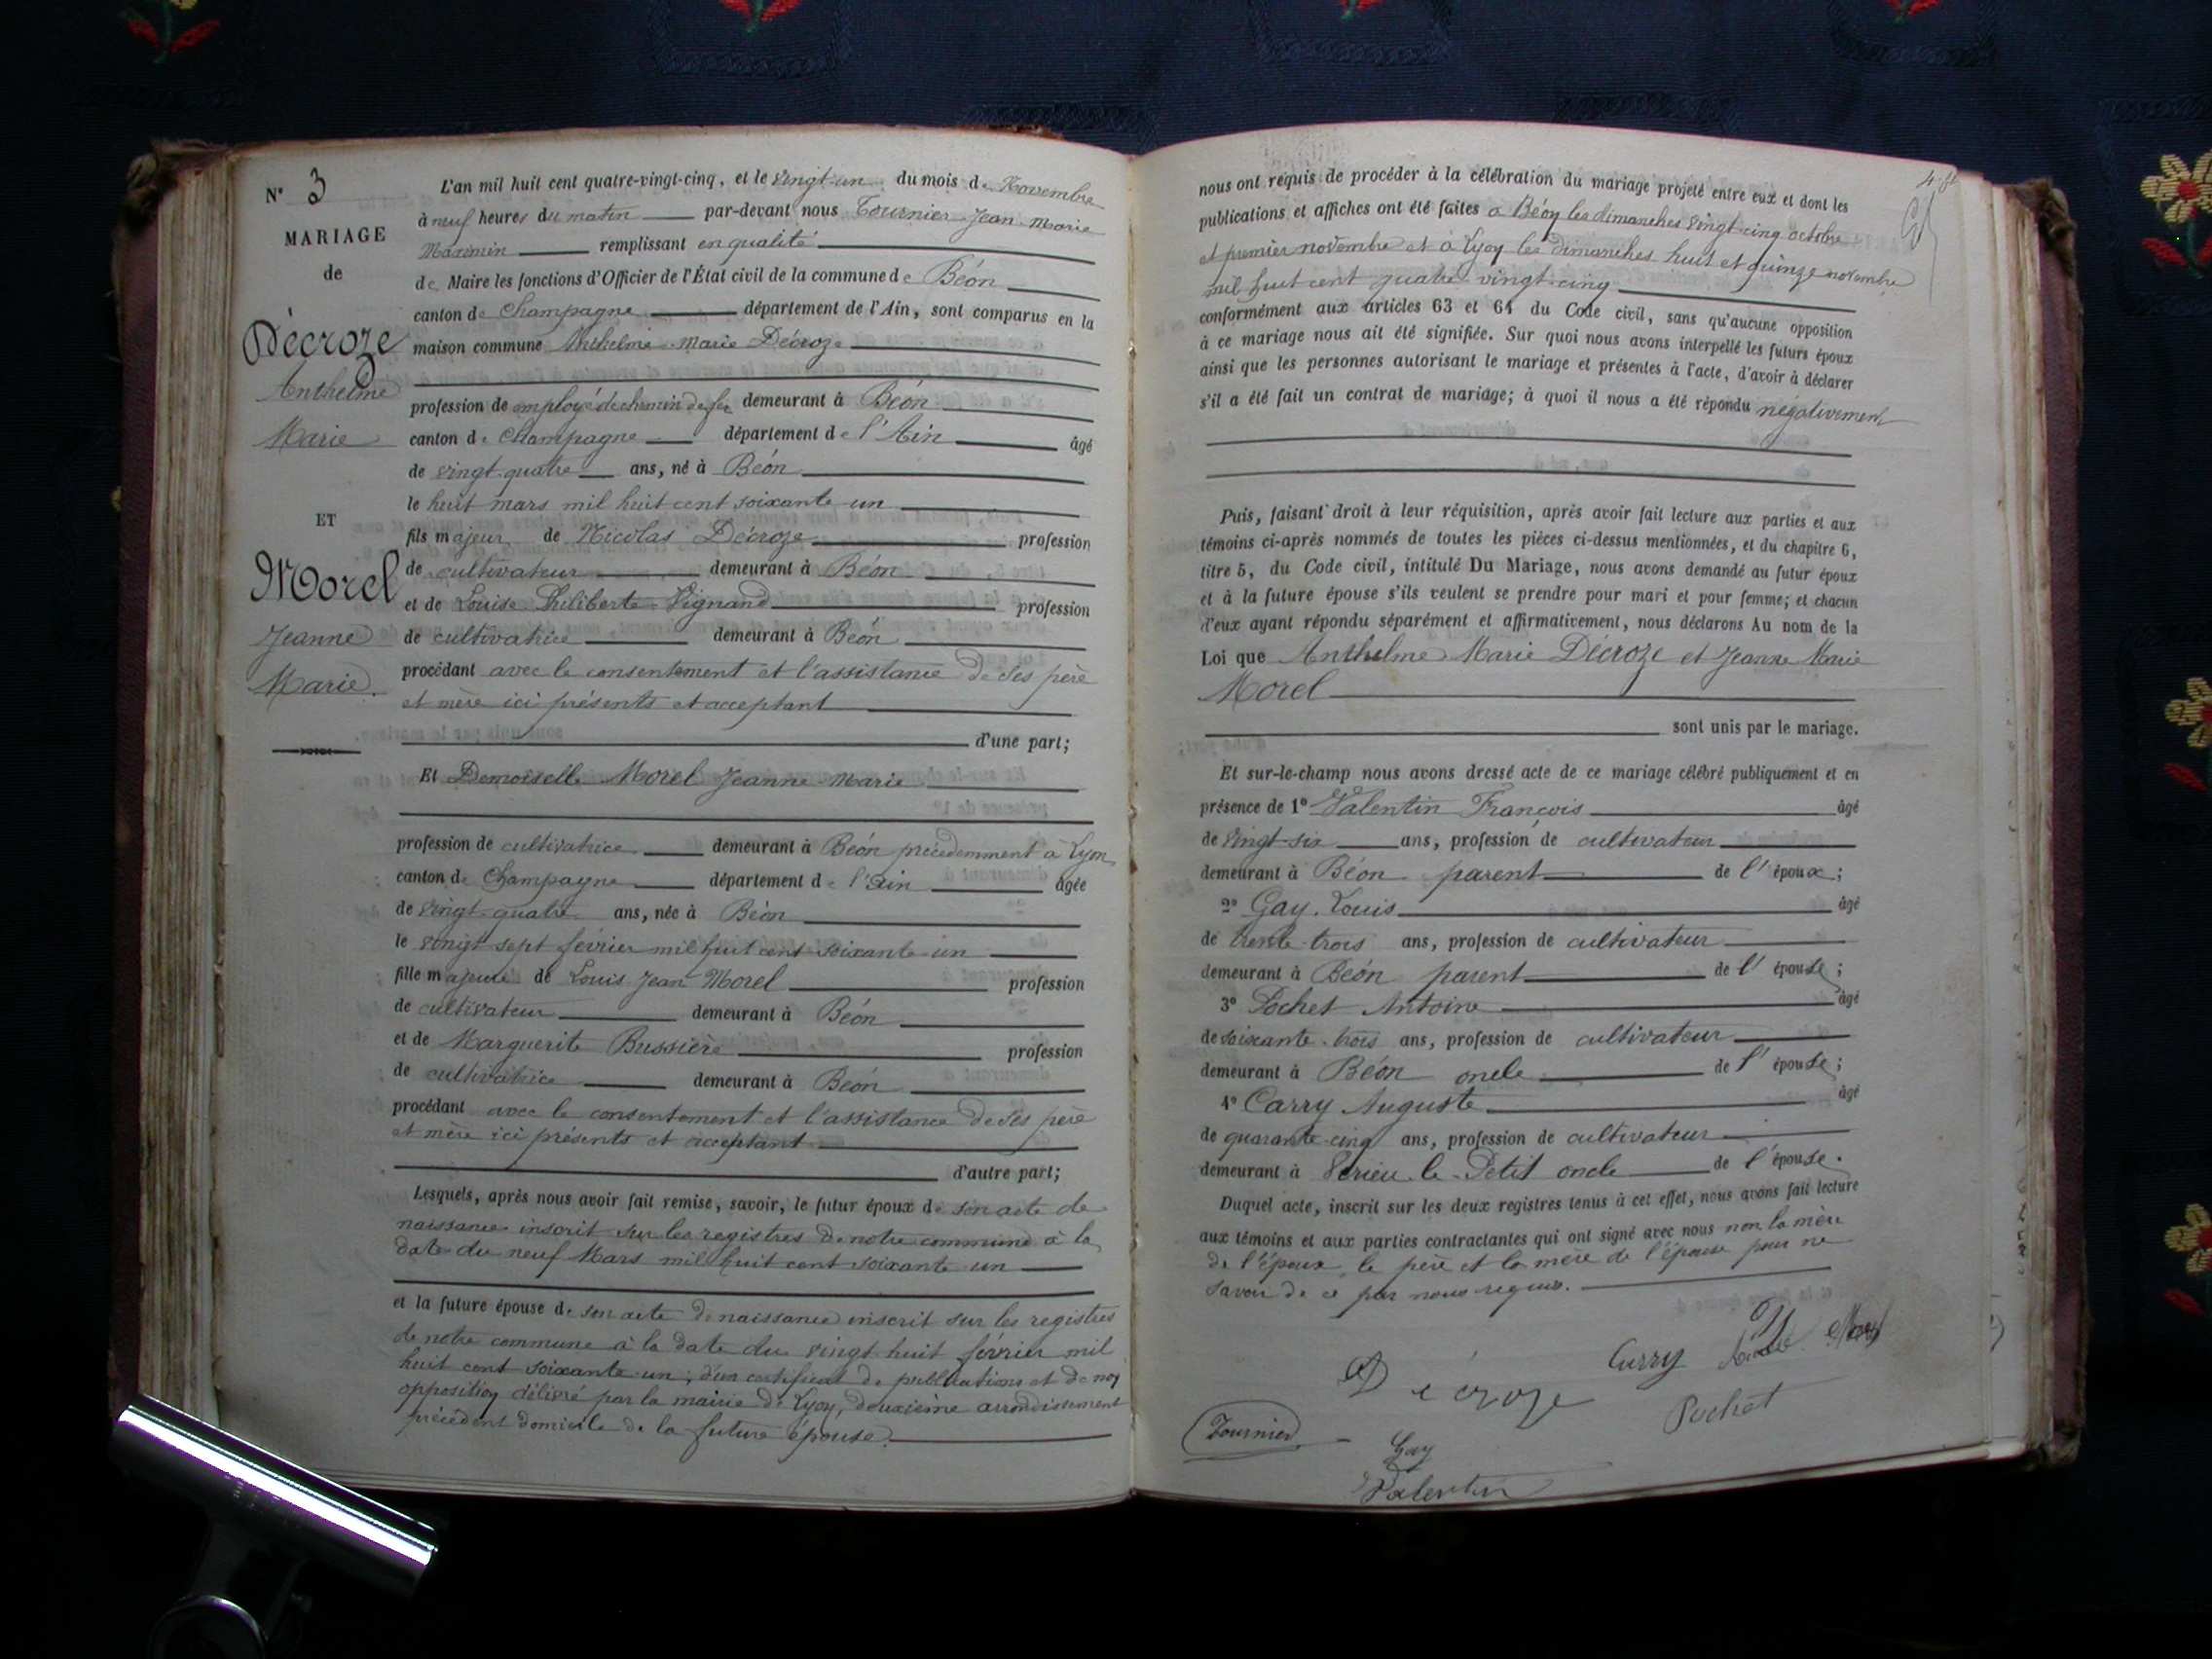 N° 3
MARIAGE
de
Décroze
Anthelme
Marie
ET
Morel
Jeanne
Marie.
L'an mil huit cent quatre-vingt-cinq, et le vingt-un du mois de Novembre
à neuf heures du matin par-devant nous Tournier Jean-Marie
Maximin remplissant en qualité
de Maire les fonctions d'Officier de l'État civil de la commune de Béon
canton de Champagne département de l'Ain, sont comparus en la
maison commune Anthelme-Marie Décroze
profession de employé de chemin de fer demeurant à Béon
canton de Champagne département de l'Ain âgé
de vingt-quatre ans, né à Béon
le huit mars mil huit cent soixante un
fils majeur de Nicolas Décroze profession
de cultivateur demeurant à Béon
et de Louise Philiberte Vignand profession
de cultivatrice demeurant à Béon
procédant avec le consentement et l'assistance de ses père
et mère ici présents et acceptant
d'une part;
Et Demoiselle Morel Jeanne-Marie
profession de cultivatrice demeurant à Béon précédemment à Lyon
canton de Champagne département de l'Ain âgée
de vingt-quatre ans, née à Béon
le vingt sept février mil huit cent soixante-un
fille majeure de Louis Jean Morel profession
de cultivateur demeurant à Béon
et de Marguerite Bussière profession
de cultivatrice demeurant à Béon
procédant avec le consentement et l'assistance de ses père
et mère ici présents et acceptant
d'autre part;
Lesquels, après nous avoir fait remise, savoir, le futur époux de son acte de
naissance inscrit sur les registres de notre commune à la
date du neuf Mars mil huit cent soixante-un
et la future épouse de son acte de naissance inscrit sur les registres
de notre commune à la date du vingt huit février mil
huit cent soixante-un; d'un certificat de publications et de non
opposition délivré par la mairie de Lyon, deuxième arrondissement
précédent domicile de la future épouse.
nous ont requis de procéder à la célébration du mariage projeté entre eux et dont les
publications et affiches ont été faites à Béon les dimanches vingt-cinq octobre
et premier novembre et à Lyon les dimanches huit et quinze novembre
mil huit cent quatre vingt-cinq
conformément aux articles 63 et 64 du Code civil, sans qu'aucune opposition
à ce mariage nous ait été signifiée. Sur quoi nous avons interpellé les futurs époux
ainsi que les personnes autorisant le mariage et présentes à l'acte, d'avoir à déclarer
s'il a été fait un contrat de mariage; à quoi il nous a été répondu négativement
Puis, faisant droit à leur réquisition, après avoir fait lecture aux parties et aux
témoins ci-après nommés de toutes les pièces ci-dessus mentionnées, et du chapitre 6,
titre 5, du Code civil, intitulé Du Mariage, nous avons demandé au futur époux
et à la future épouse s'ils veulent se prendre pour mari et pour femme; et chacun
d'eux ayant répondu séparément et affirmativement, nous déclarons Au nom de la
Loi que Anthelme Marie Décroze et Jeanne Marie
Morel
sont unis par le mariage.
Et sur-le-champ nous avons dressé acte de ce mariage célébré publiquement et en
présence de 1° Valentin François âgé
de vingt-six ans, profession de cultivateur
demeurant à Béon parent de l'époux;
2° Gay Louis âgé
de trente-trois ans, profession de cultivateur
demeurant à Béon parent de l'épouse;
3° Pochet Antoine âgé
de soixante-trois ans, profession de cultivateur
demeurant à Béon oncle de l'épouse;
4° Carry Auguste âgé
de quarante-cinq ans, profession de cultivateur
demeurant à Vérieu-le-Petit oncle de l'épouse.
Duquel acte, inscrit sur les deux registres tenus à cet effet, nous avons fait lecture
aux témoins et aux parties contractantes qui ont signé avec nous non la mère
de l'époux, le père et la mère de l'épouse pour ne
savoir de ce par nous requis.
Décroze
Carry
Morel
Pochet
Tournier
Gay
Valentin